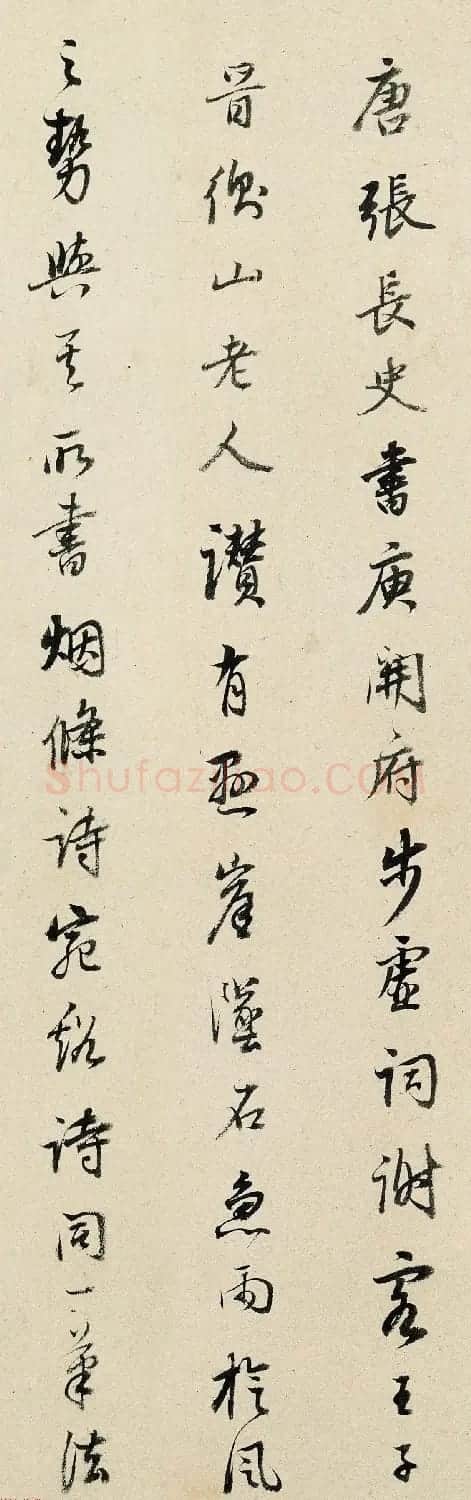 唐張長史書庾開府步虛詞謝客王子
晉衡山老人讚有懸崖墜石急雨旋風
之勢與其所書烟條詩宛谿詩同一筆法